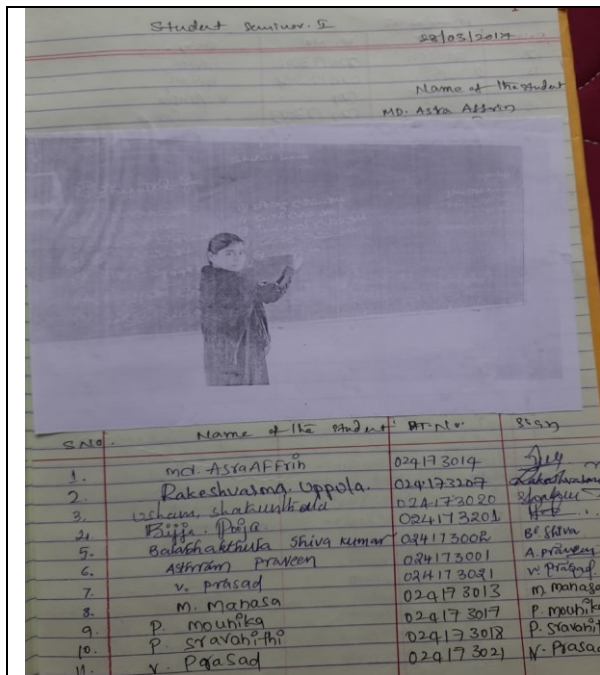 Student Seminar. I
28/03/2017
Name of the student
MD. Asra Affrin
S.No. Name of the student HT.No. Sign
1. md. Asra AFFrin 024173014
2. Rakeshvarma. Uppola. 024173207 Rakeshvarma
3. shakunthala 024173020
4. Bijja. Poja 024173201
5. Balabhakthula Shiva kumar 024173002 B. Shiva
6. Athram praveen 024173001 A. praveen
7. V. prasad 024173021 V. prasad
8. m. manasa 024173013 m. manasa
9. P. mounika 024173017 P. mounika
10. P. sravanithi 024173018 P. sravanithi
11. V. Prasad 024173021 V. Prasad